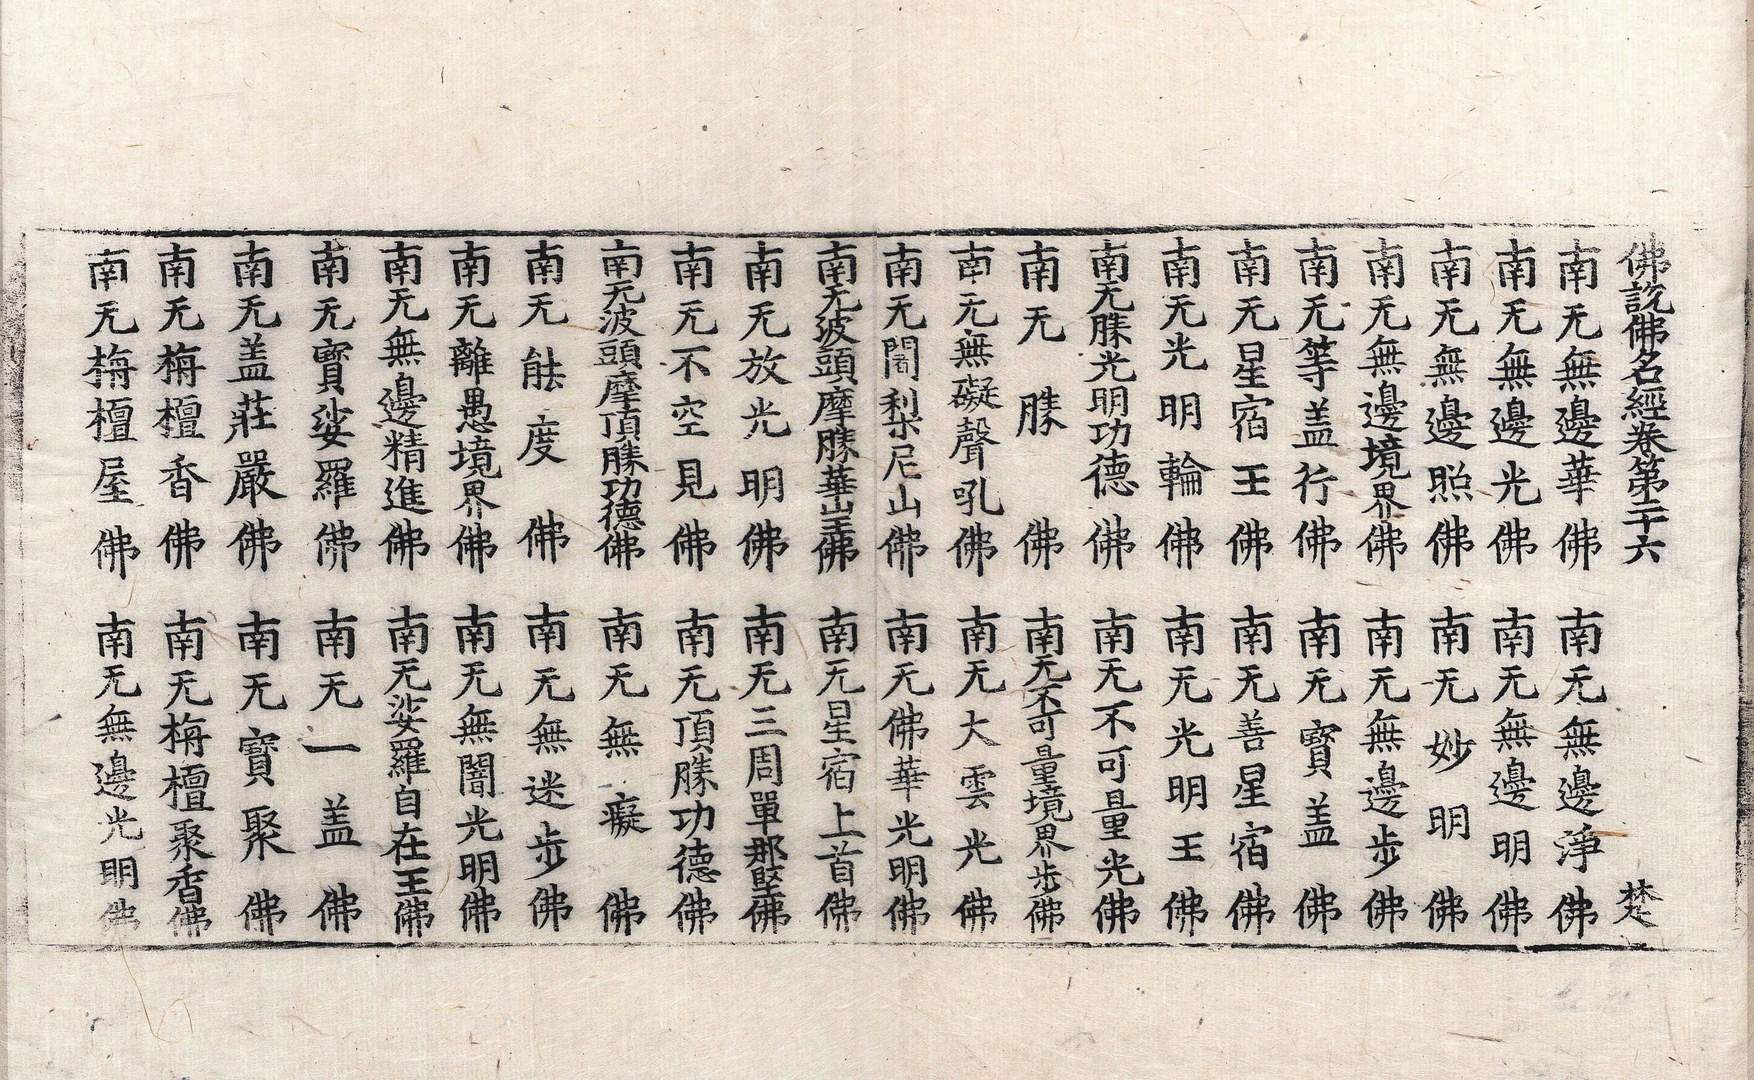 佛說佛名經卷第二十六　楚
南无無邊華佛　南无無邊淨佛
南无無邊光佛　南无無邊明佛
南无無邊照佛　南无妙明佛
南无無邊境界佛　南无無邊步佛
南无等盖行佛　南无寶盖佛
南无星宿王佛　南无善星宿佛
南无光明輪佛　南无光明王佛
南无勝光明功德佛　南无不可量光佛
南无勝佛　南无不可量境界步佛
南无無礙聲吼佛　南无大雲光佛
南无闍梨尼山佛　南无佛華光明佛
南无波頭摩勝華山王佛　南无星宿上首佛
南无放光明佛　南无三周單那堅佛
南无不空見佛　南无頂勝功德佛
南无波頭摩頂勝功德佛　南无無癡佛
南无能度佛　南无無迷步佛
南无離愚境界佛　南无無闇光明佛
南无無邊精進佛　南无娑羅自在王佛
南无寶娑羅佛　南无一盖佛
南无盖莊嚴佛　南无寶聚佛
南无栴檀香佛　南无栴檀聚香佛
南无栴檀屋佛　南无無邊光明佛